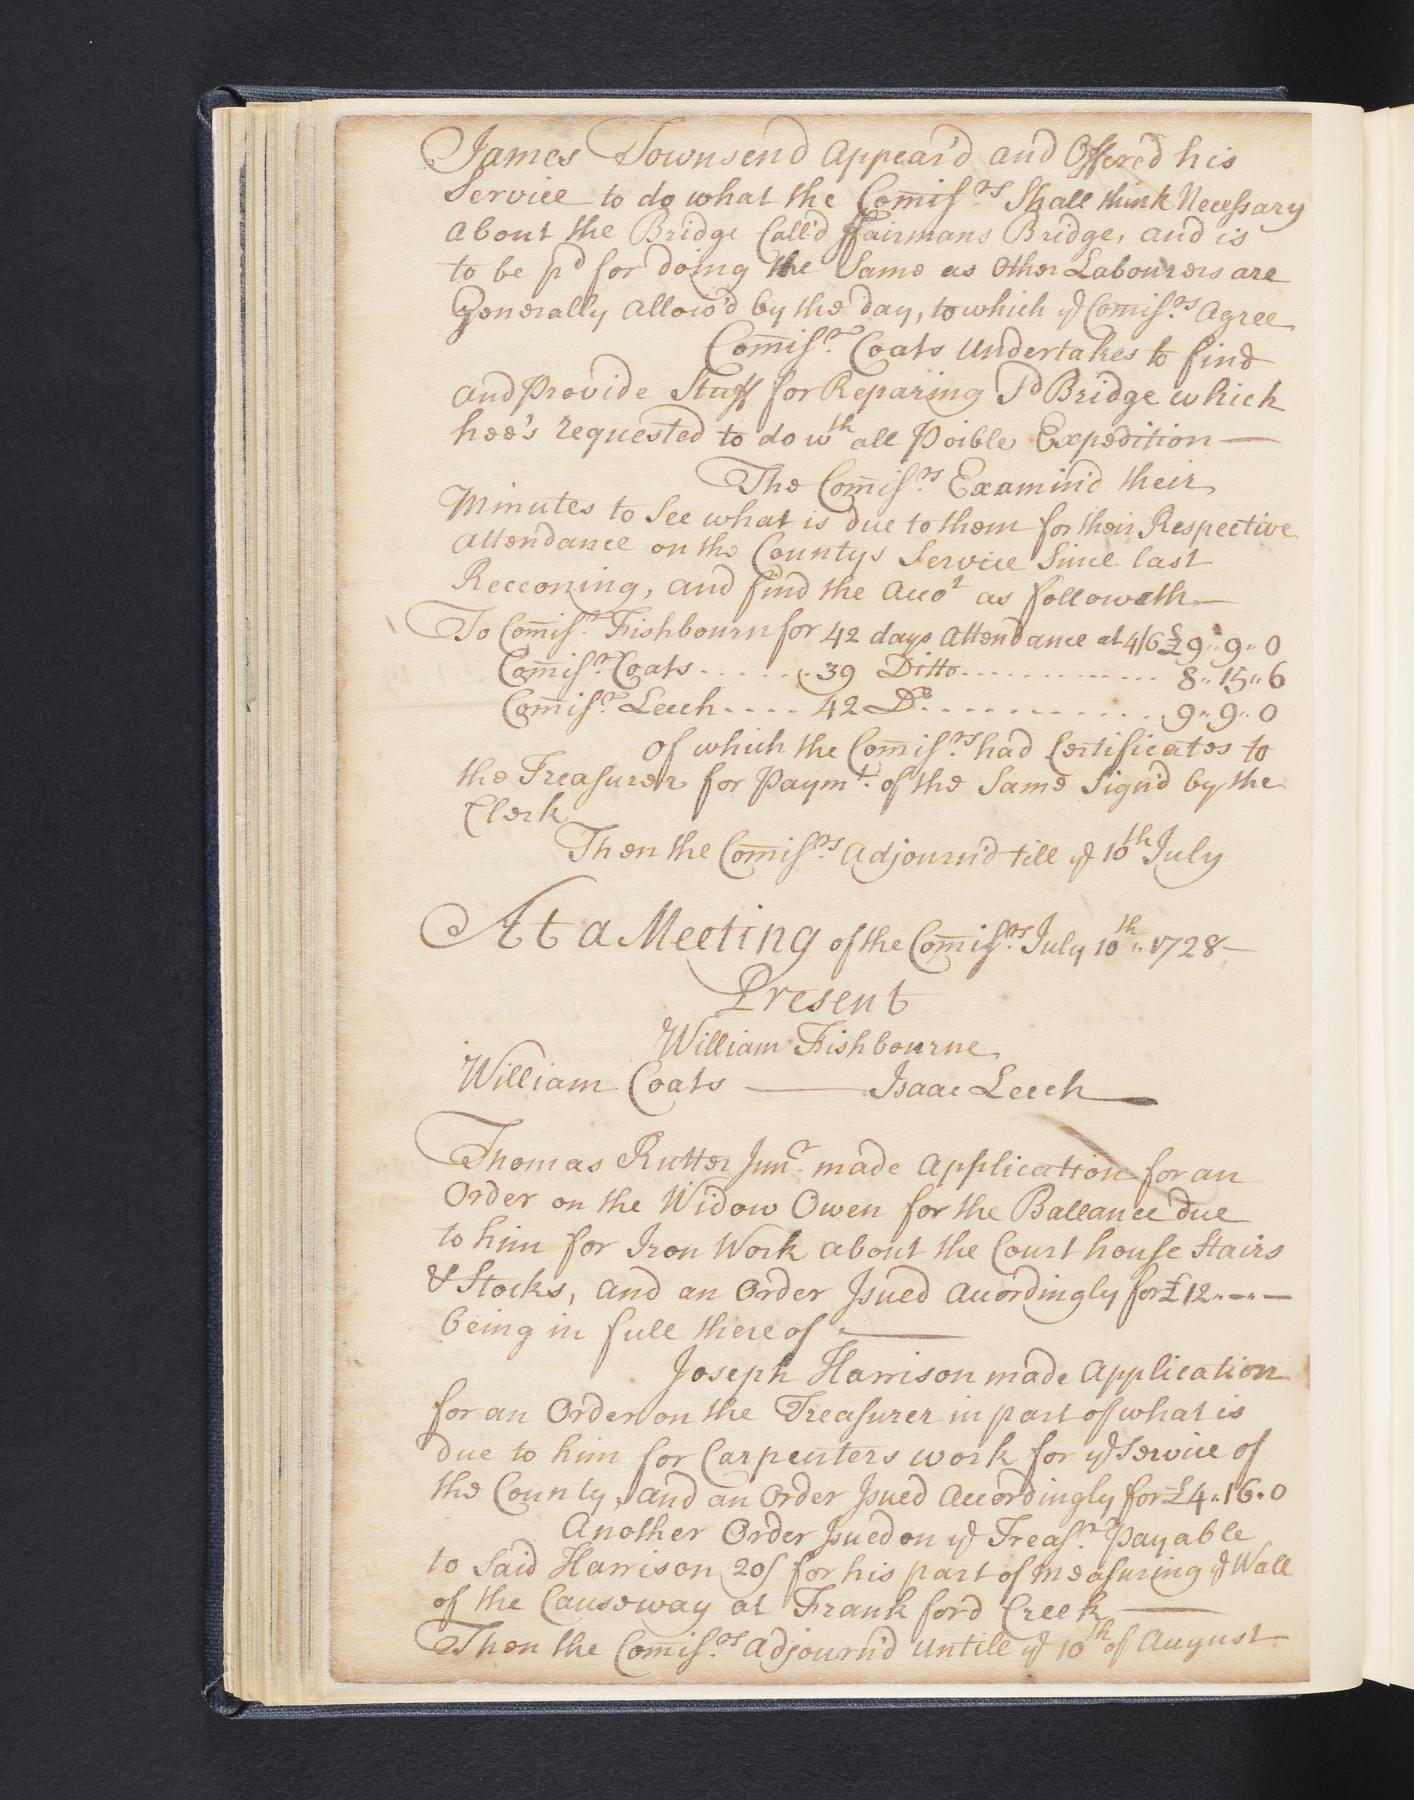 James Townsend Appear'd and Offered his
Service to do what the Comiss.rs Shall think Necessary
about the Bridge Call'd ffairmans Bridge, and is
to be pd for doing the Same as Other Labourers are
Generally allow'd by the day, to which ye Comiss.rs Agree
Comiss.r Coats Undertakes to find
and Provide Stuff for Reparing Sd Bridge which
hee's requested to do wth all Poible Expedition —
The Comiss.rs Examin'd their
Minutes to See what is due to them for their Respective
attendance on the Countys Service Since last
Recconing, and find the Accot as followeth —
To Comiss.r Fishbourn for 42 days Attendance at 4/6 £9..9..0
Comiss.r Coats ...... 39 Ditto ............ 8..15..6
Comiss.r Leech .... 42 Do ............ 9..9..0
of which the Comiss.rs had Certificates to
the Treasurer for Paymt. of the Same Sign'd by the
Clerk
Then the Comiss.rs Adjourn'd till ye 10th July
At a Meeting of the Comiss.rs July 10th.. 1728 —
Present
William Fishbourne
William Coats — Isaac Leech
Thomas Rutter Junr. made Application for an
Order on the Widow Owen for the Ballance due
to him for Iron Work about the Court house Stairs
& Stocks, and an Order Issued Accordingly for £12..—..—
being in full thereof —
Joseph Harrison made Application
for an Order on the Treasurer in part of what is
due to him for Carpenters work for ye Service of
the County, and an Order Issued Accordingly for £4..16.0
Another Order Issued on ye Treas.r Payable
to Said Harrison 20s for his part of Measuring ye Wall
of the Causeway at Frankford Creek —
Then the Comiss.rs Adjourn'd untill ye 10th of August